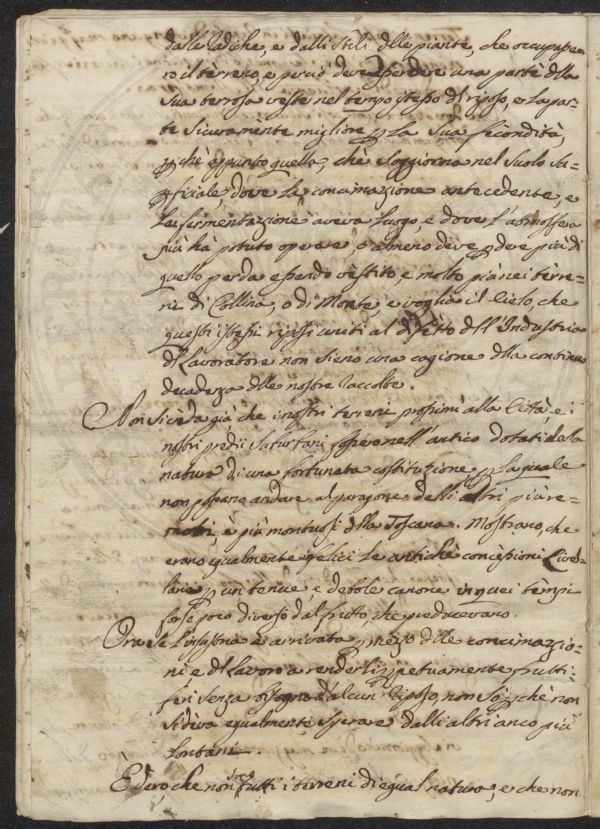 dalle Radiche, e dalli stili delle piante, che occupava
no il terreno, e perciò deve perdere una parte della
sua terrosa veste nel tempo stesso del riposo, e la par=
te sicuramente migliore p. la sua fecondità,
p.chè appunto quella, che soggiorna nel suolo su=
p.ficiale, dove la concimazione antecedente, e
la fermentazione aveva luogo, e dove l'atmosfera
più hà potuto operare, o almeno deve p.dere più di
quello perda essendo vestito, e molto più nei terre=
ni di Collina, o di Monte, e voglia il Cielo, che
questi istessi riposi uniti al difetto dell'Industria
del Lavoratore non sieno una cagione della continua
decadenza delle nostre Raccolte.
Non si creda già, che i nostri terreni prossimi alla Città, e i
nostri predii suburbani fossero nell'antico dotati dalla
natura di una fortunata costituzione p. la quale
non possano andare al paragone delli altri più re=
moti, e più montuosi della Toscana. Mostrano, che
erano egualmente felici le antiche concessioni Livel=
larie p. un tenue, e debole canone in quei tempi
forse poco diverso dal frutto, che producevano.
Ora se l'industria è arrivata p. mezzo delle concimazio=
ni e del Lavoro a renderli p.petuamente frutti=
feri senza bisogno d'alcun Riposo, non sò p.chè non
si deva egualmente sperare dalli altri anco più
lontani.
È vero, che non sono tutti i terreni di egual natura, e che non